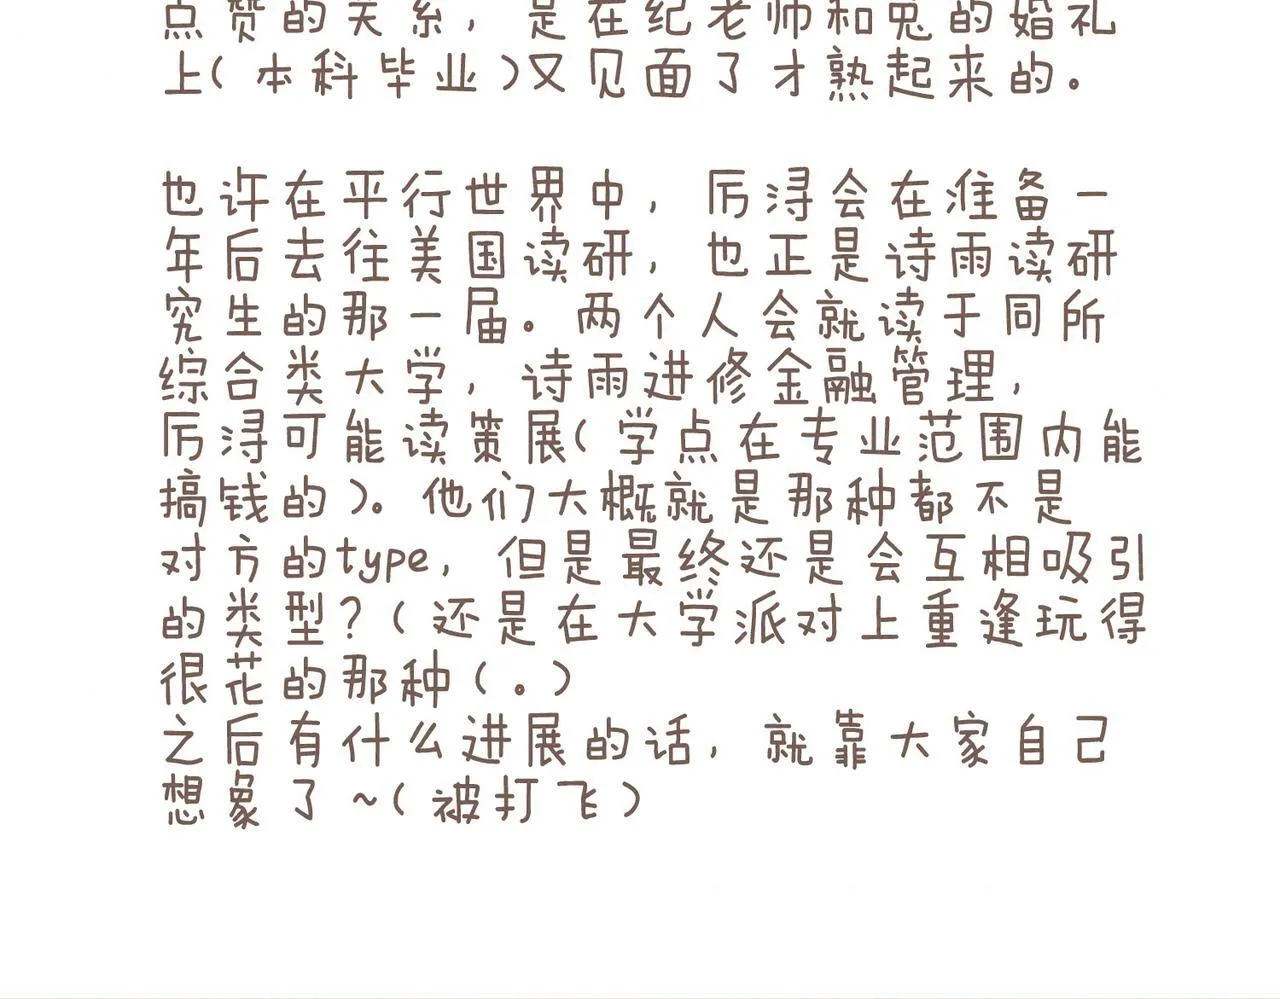 点赞的关系，是在纪老师和兔的婚礼
上(本科毕业)又见面了才熟起来的。
也许在平行世界中，厉浔会在准备一
年后去往美国读研，也正是诗雨读研
究生的那一届。两个人会就读于同所
综合类大学，诗雨进修金融管理，
厉浔可能读策展(学点在专业范围内能
搞钱的)。他们大概就是那种都不是
对方的type，但是最终还是会互相吸引
的类型?(还是在大学派对上重逢玩得
很花的那种(。)
之后有什么进展的话，就靠大家自己
想象了~(被打飞)